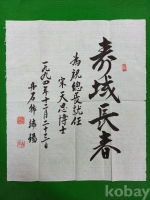 壽域長春
為祝總長就任
宋天思博士
一九九四年十二月二十三日
kobay